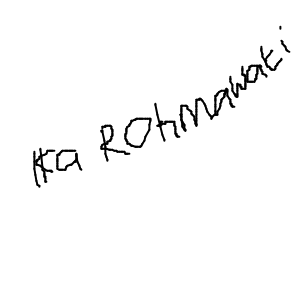 Ika Rohmawati